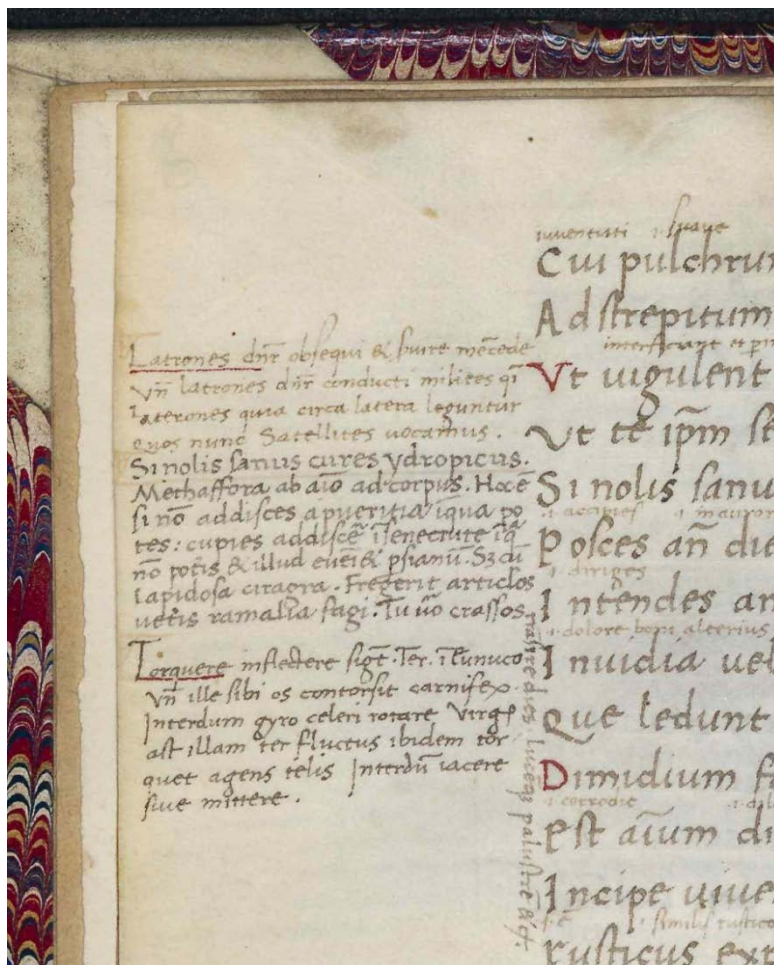 Latrones dnr̄ obsequi & suire mercede
vn̄ latrones dnr̄ conducti milites qi
laterones quia circa latera leguntur
quos nunc Satellites uocamus.
Si nolis sanus cures ydropicus.
Methaffora ab aīo ad corpus. Hoc ē
si nō addisces a pueritia iqua po
tes: cupies addiscē
nō potis & illud
lapidosa ciragra. Fregerit articlos
uetis ramalia fagi. Tu uō crassos
transire dies lucēqȝ palustrē &cꝭ.
Torquere inflectere sigt̄. Ter. ī Eunuco
vn̄ ille sibi os contorsit carnifex
Interdum gyro celeri rotare Virgꝭ
ast illam ter fluctus ibidem tor
quet agens
Interdū iacere
siue mittere.
iuuentuti i suaue
Cui pulchrum
Ad strepitum
interficiant et
Vt iugulent
Vt te ip̄m se
Si nolis sanu
i accipies i in auror
Posces an̄ die
i diriges
Intendes an
i dolore boni alterius
Inuidia uel
Que ledunt
Dimidium fa
i corrodit
Est aīum di
Incipe uiue
similis rustico
Rusticus exp